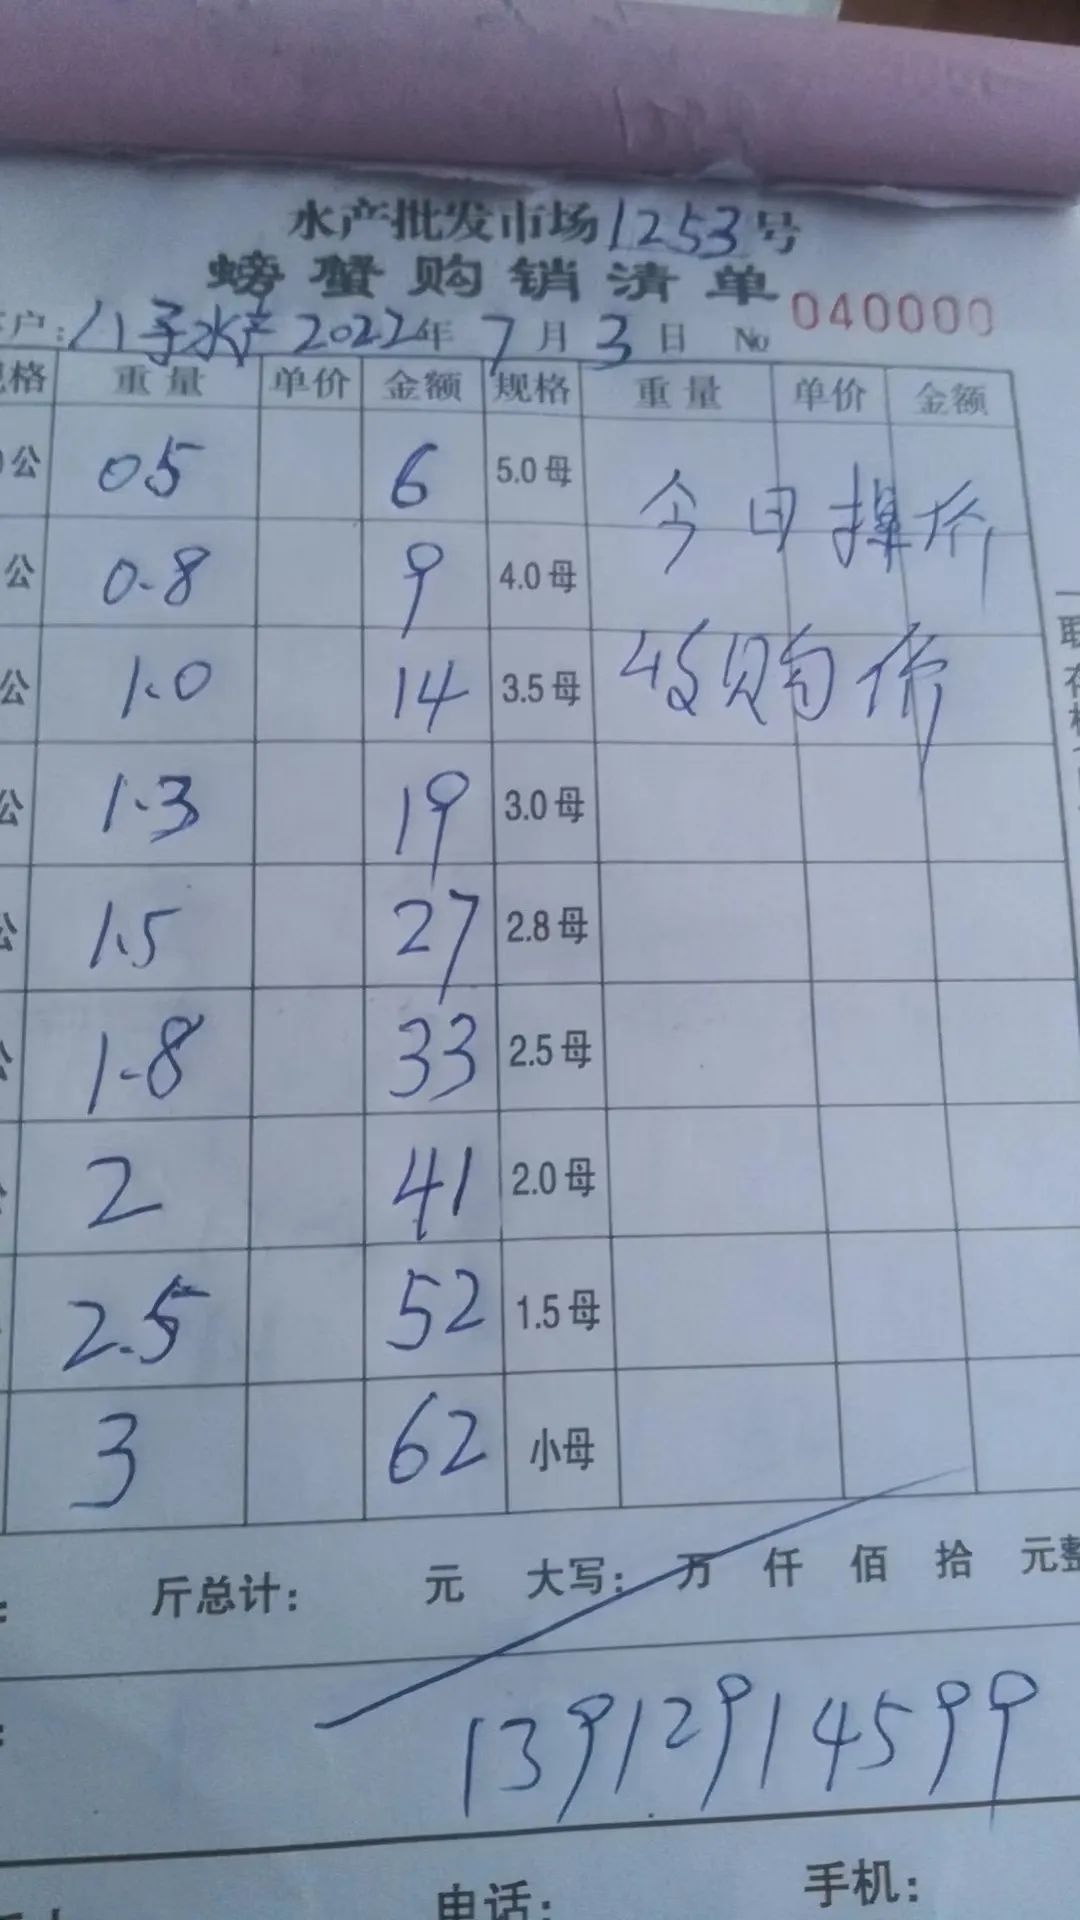 水产批发市场1253号
螃蟹购销清单
户:八子水产 2022年 7月3日 No 040000
格 重量 单价 金额 规格 重量 单价 金额
公 05 6 5.0母
公 0.8 9 4.0母
今日掉价
公 1.0 14 3.5母 收购价
公 1.3 19 3.0母
公 1.5 27 2.8母
1.8 33 2.5母
2 41 2.0母
2.5 52 1.5母
3 62 小母
斤总计: 元 大写: 万 仟 佰 拾 元整
13912914599
电话: 手机:
一联